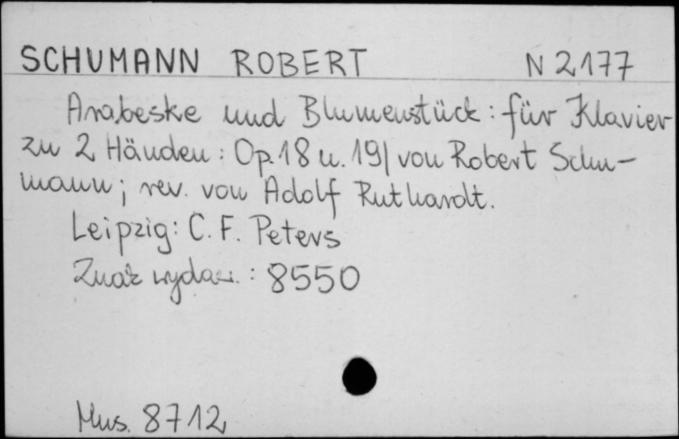 SCHUMANN ROBERT N 2177
Arabeske und Blumenstück: für Klavier
zu 2 Händen: Op. 18 u. 19/ von Robert Schu-
mann; rev. von Adolf Ruthardt.
Leipzig: C. F. Peters
Znak wydaw.: 8550
Mus. 8712